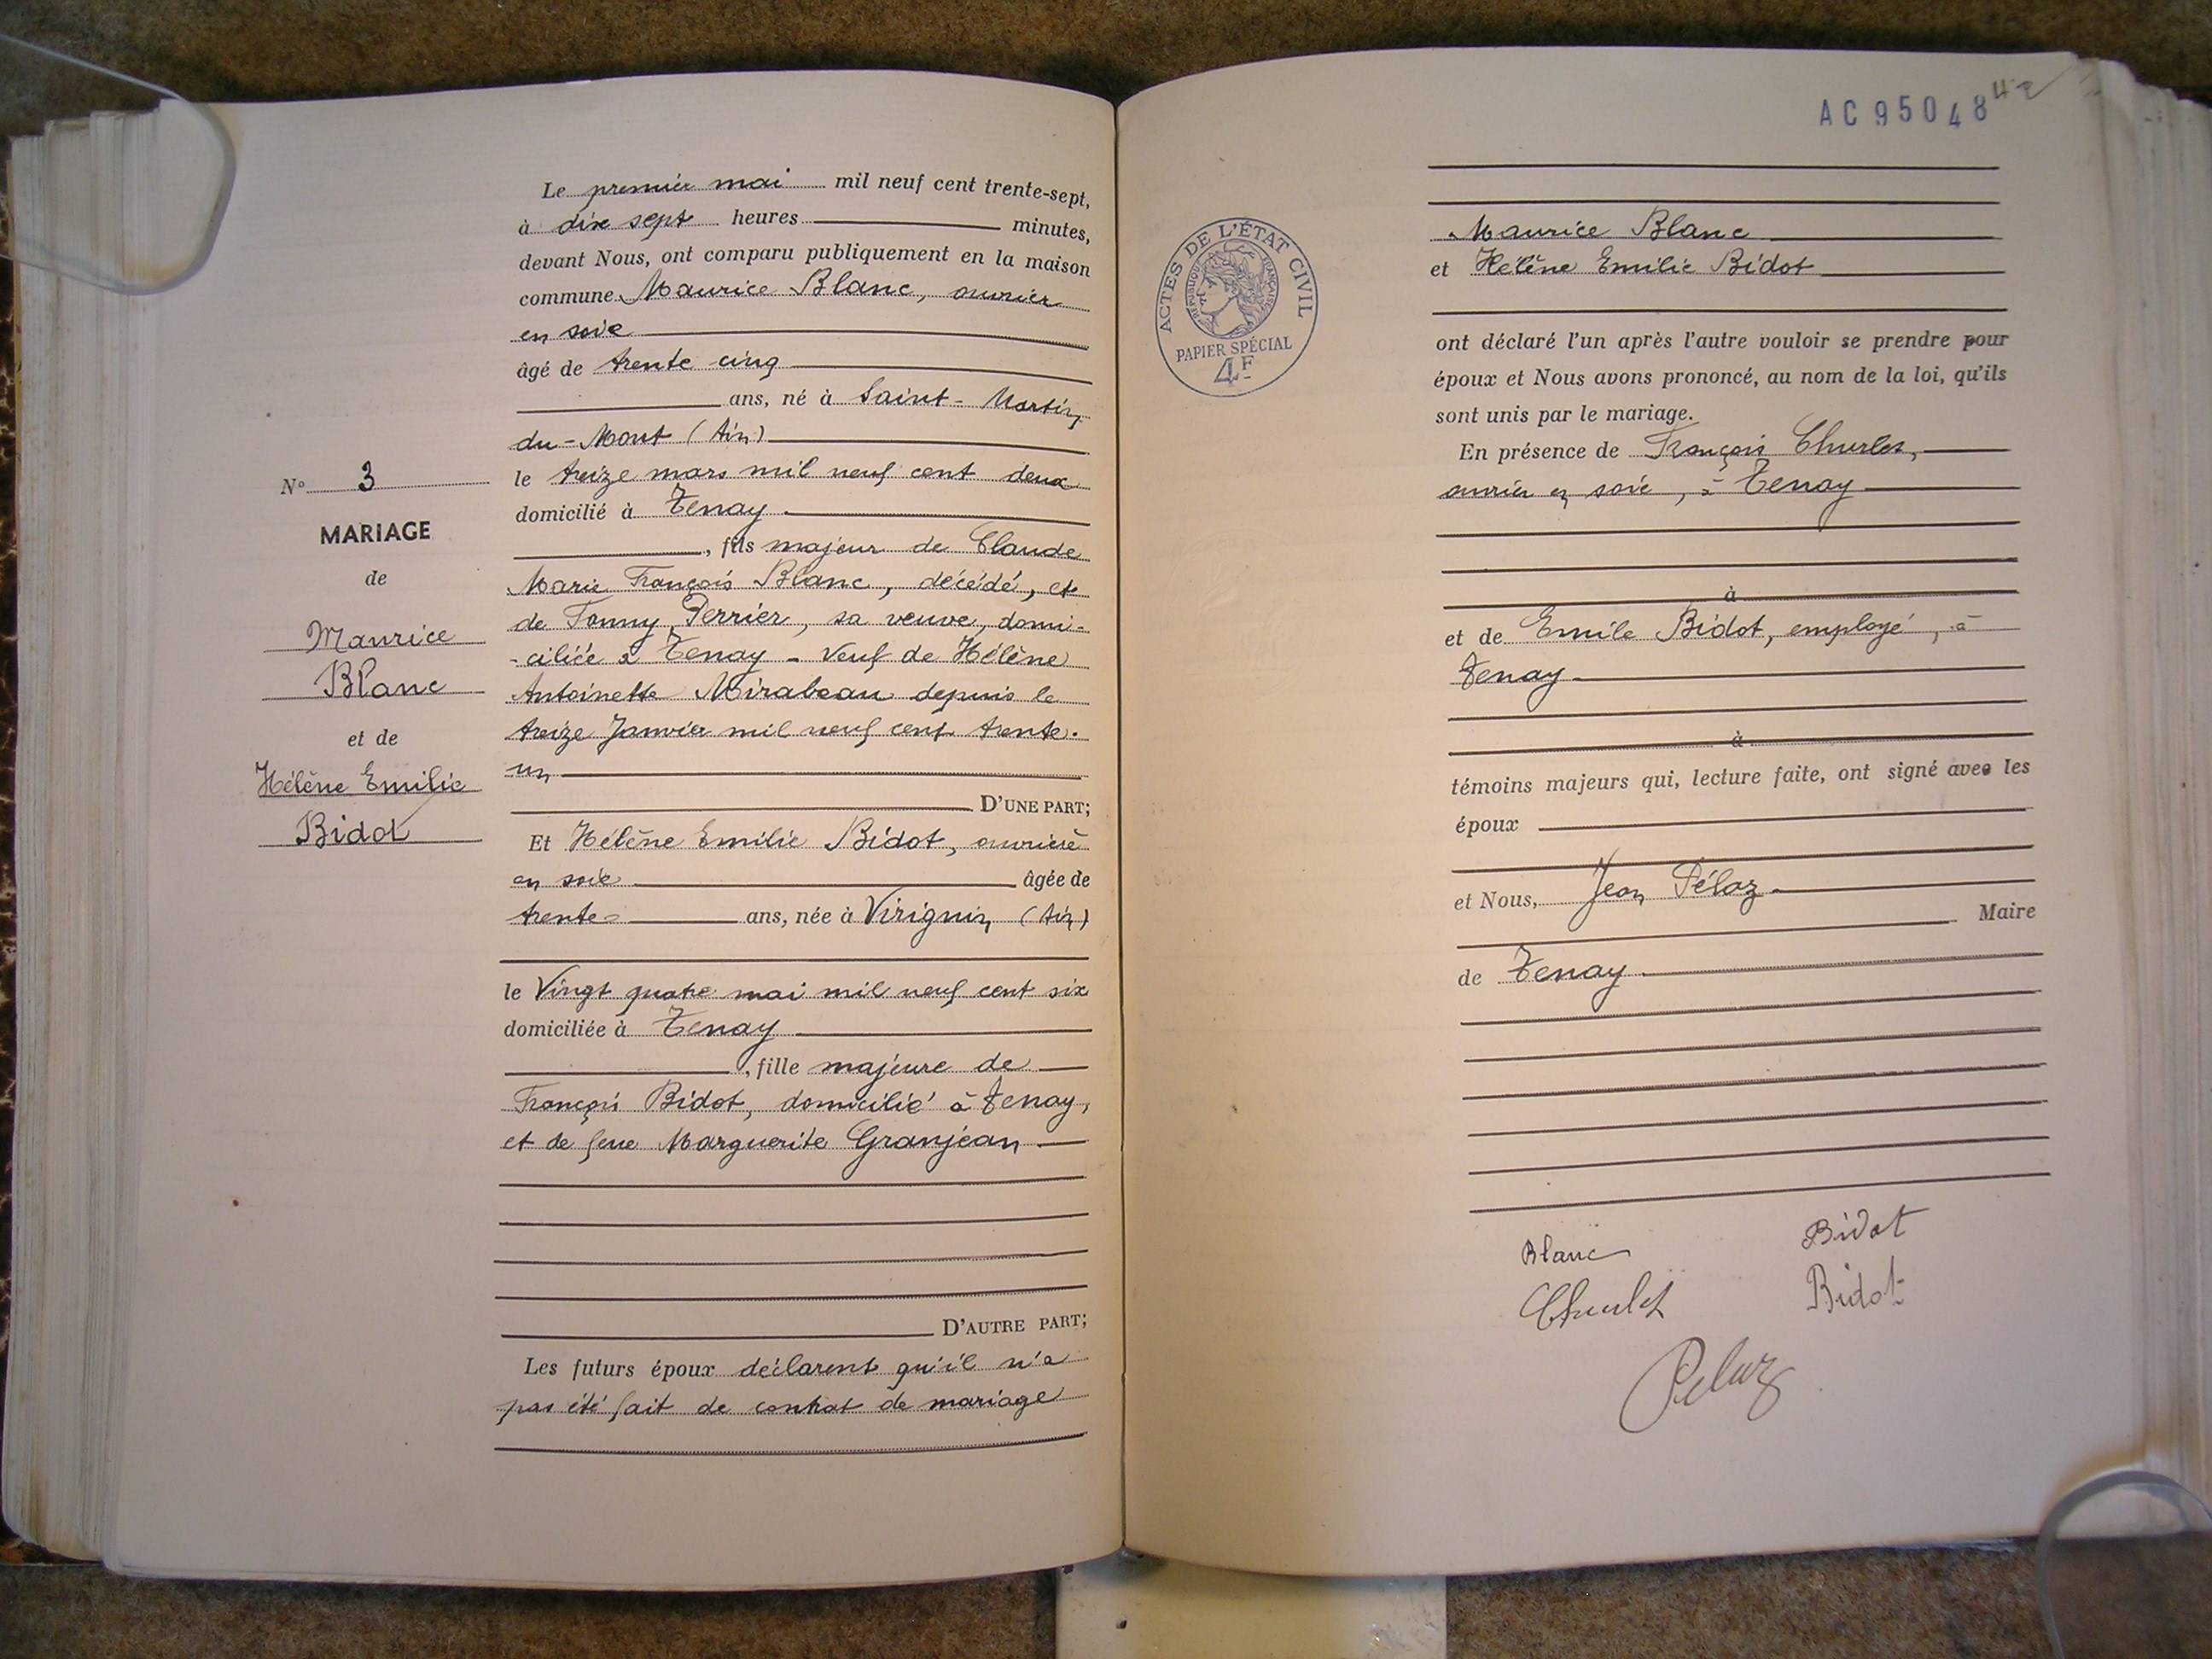 Le premier mai mil neuf cent trente-sept,
à dix sept heures minutes,
devant Nous, ont comparu publiquement en la maison
commune Maurice Blanc, ouvrier
en soie
âgé de trente cinq
ans, né à Saint-Martin
du-Mont (Ain)
le treize mars mil neuf cent deux
domicilié à Tenay
, fils majeur de Claude
Marie François Blanc, décédé, et
de Fanny Perrier, sa veuve, domi-
-ciliée à Tenay - Veuf de Hélène
Antoinette Mirabeau depuis le
treize Janvier mil neuf cent trente-
un
D'UNE PART;
Et Hélène Emilie Bidot, ouvrière
en soie âgée de
trente ans, née à Virignin (Ain)
le Vingt quatre mai mil neuf cent six
domiciliée à Tenay
, fille majeure de
François Bidot, domicilié à Tenay,
et de feue Marguerite Granjean
D'AUTRE PART;
Les futurs époux déclarent qu'il n'a
pas été fait de contrat de mariage
N° 3
MARIAGE
de
Maurice
Blanc
et de
Hélène Emilie
Bidot
AC95048
42
ACTES DE L'ÉTAT CIVIL
RÉPUBLIQUE FRANÇAISE
PAPIER SPÉCIAL
4F
Maurice Blanc
et Hélène Emilie Bidot
ont déclaré l'un après l'autre vouloir se prendre pour
époux et Nous avons prononcé, au nom de la loi, qu'ils
sont unis par le mariage.
En présence de François Churlet,
ouvrier en soie, à Tenay
à
et de Emile Bidot, employé, à
Tenay
à
témoins majeurs qui, lecture faite, ont signé avec les
époux
et Nous, Jean Pélaz
Maire
de Tenay
Blanc Bidot
Churlet Bidot
Pelaz